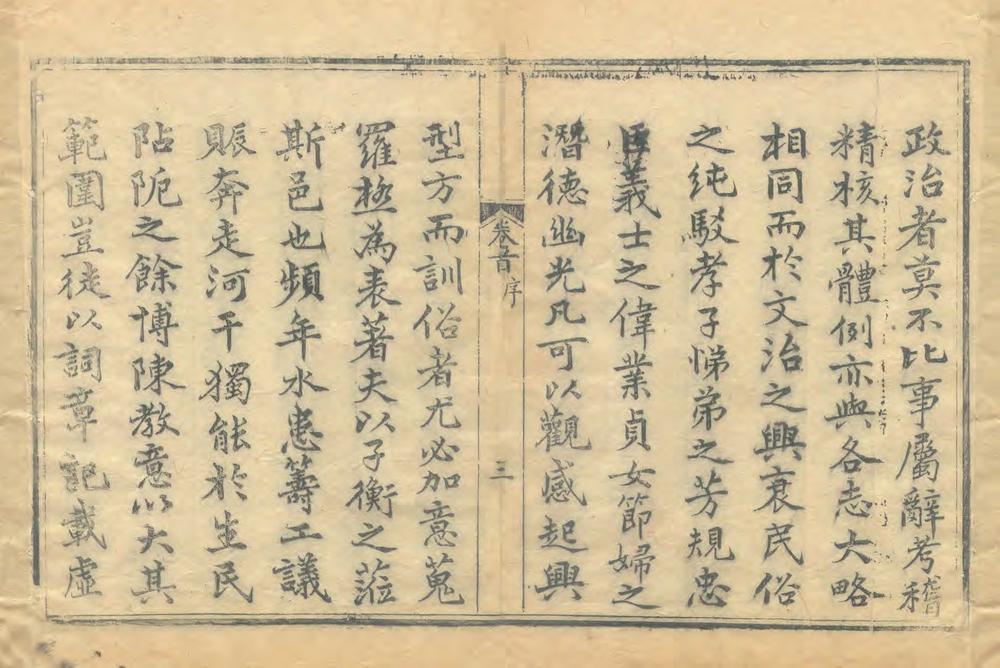 政治者莫不比事屬辭考稽
精核其體例亦與各志大略
相同而於文治之興衰民俗
之純駁孝子悌弟之芳規忠
臣義士之偉業貞女節婦之
潛德幽光凡可以觀感起興
卷首 序
三
型方而訓俗者尤必加意蒐
羅極為表著夫以子衡之蒞
斯邑也頻年水患籌工議
賑奔走河干獨能於生民
阽阨之餘博陳教意以大其
範圍豈徒以詞章記載虛